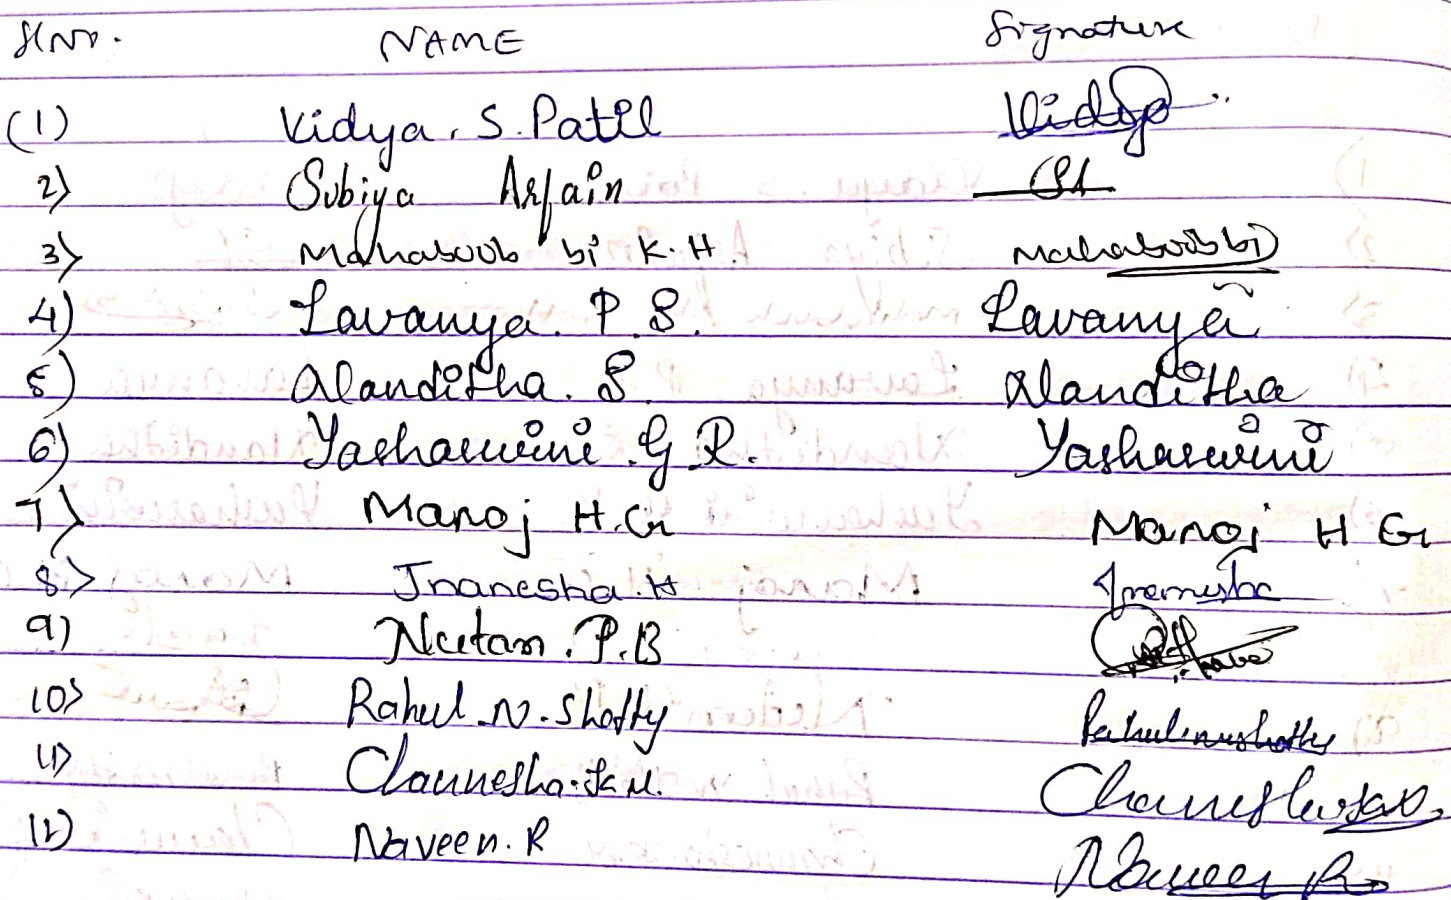 Sl No. NAME Signature
(1) Vidya. S. Patil Vidya
2) Subiya Arfain SA
3) Mahaboob bi K. H. Mahaboob bi
4) Lavanya. P. S. Lavanya
5) Nanditha. S. Nanditha
6) Yashaswini. G R. Yashaswini
7) Manoj H.G Manoj H G
8) Jnanesha. H Jnanesha
9) Nutan. P.B
10) Rahul .N. Shetty Rahul n shetty
11) Channesha. K.M. Channesha
12) Naveen. R Naveen R